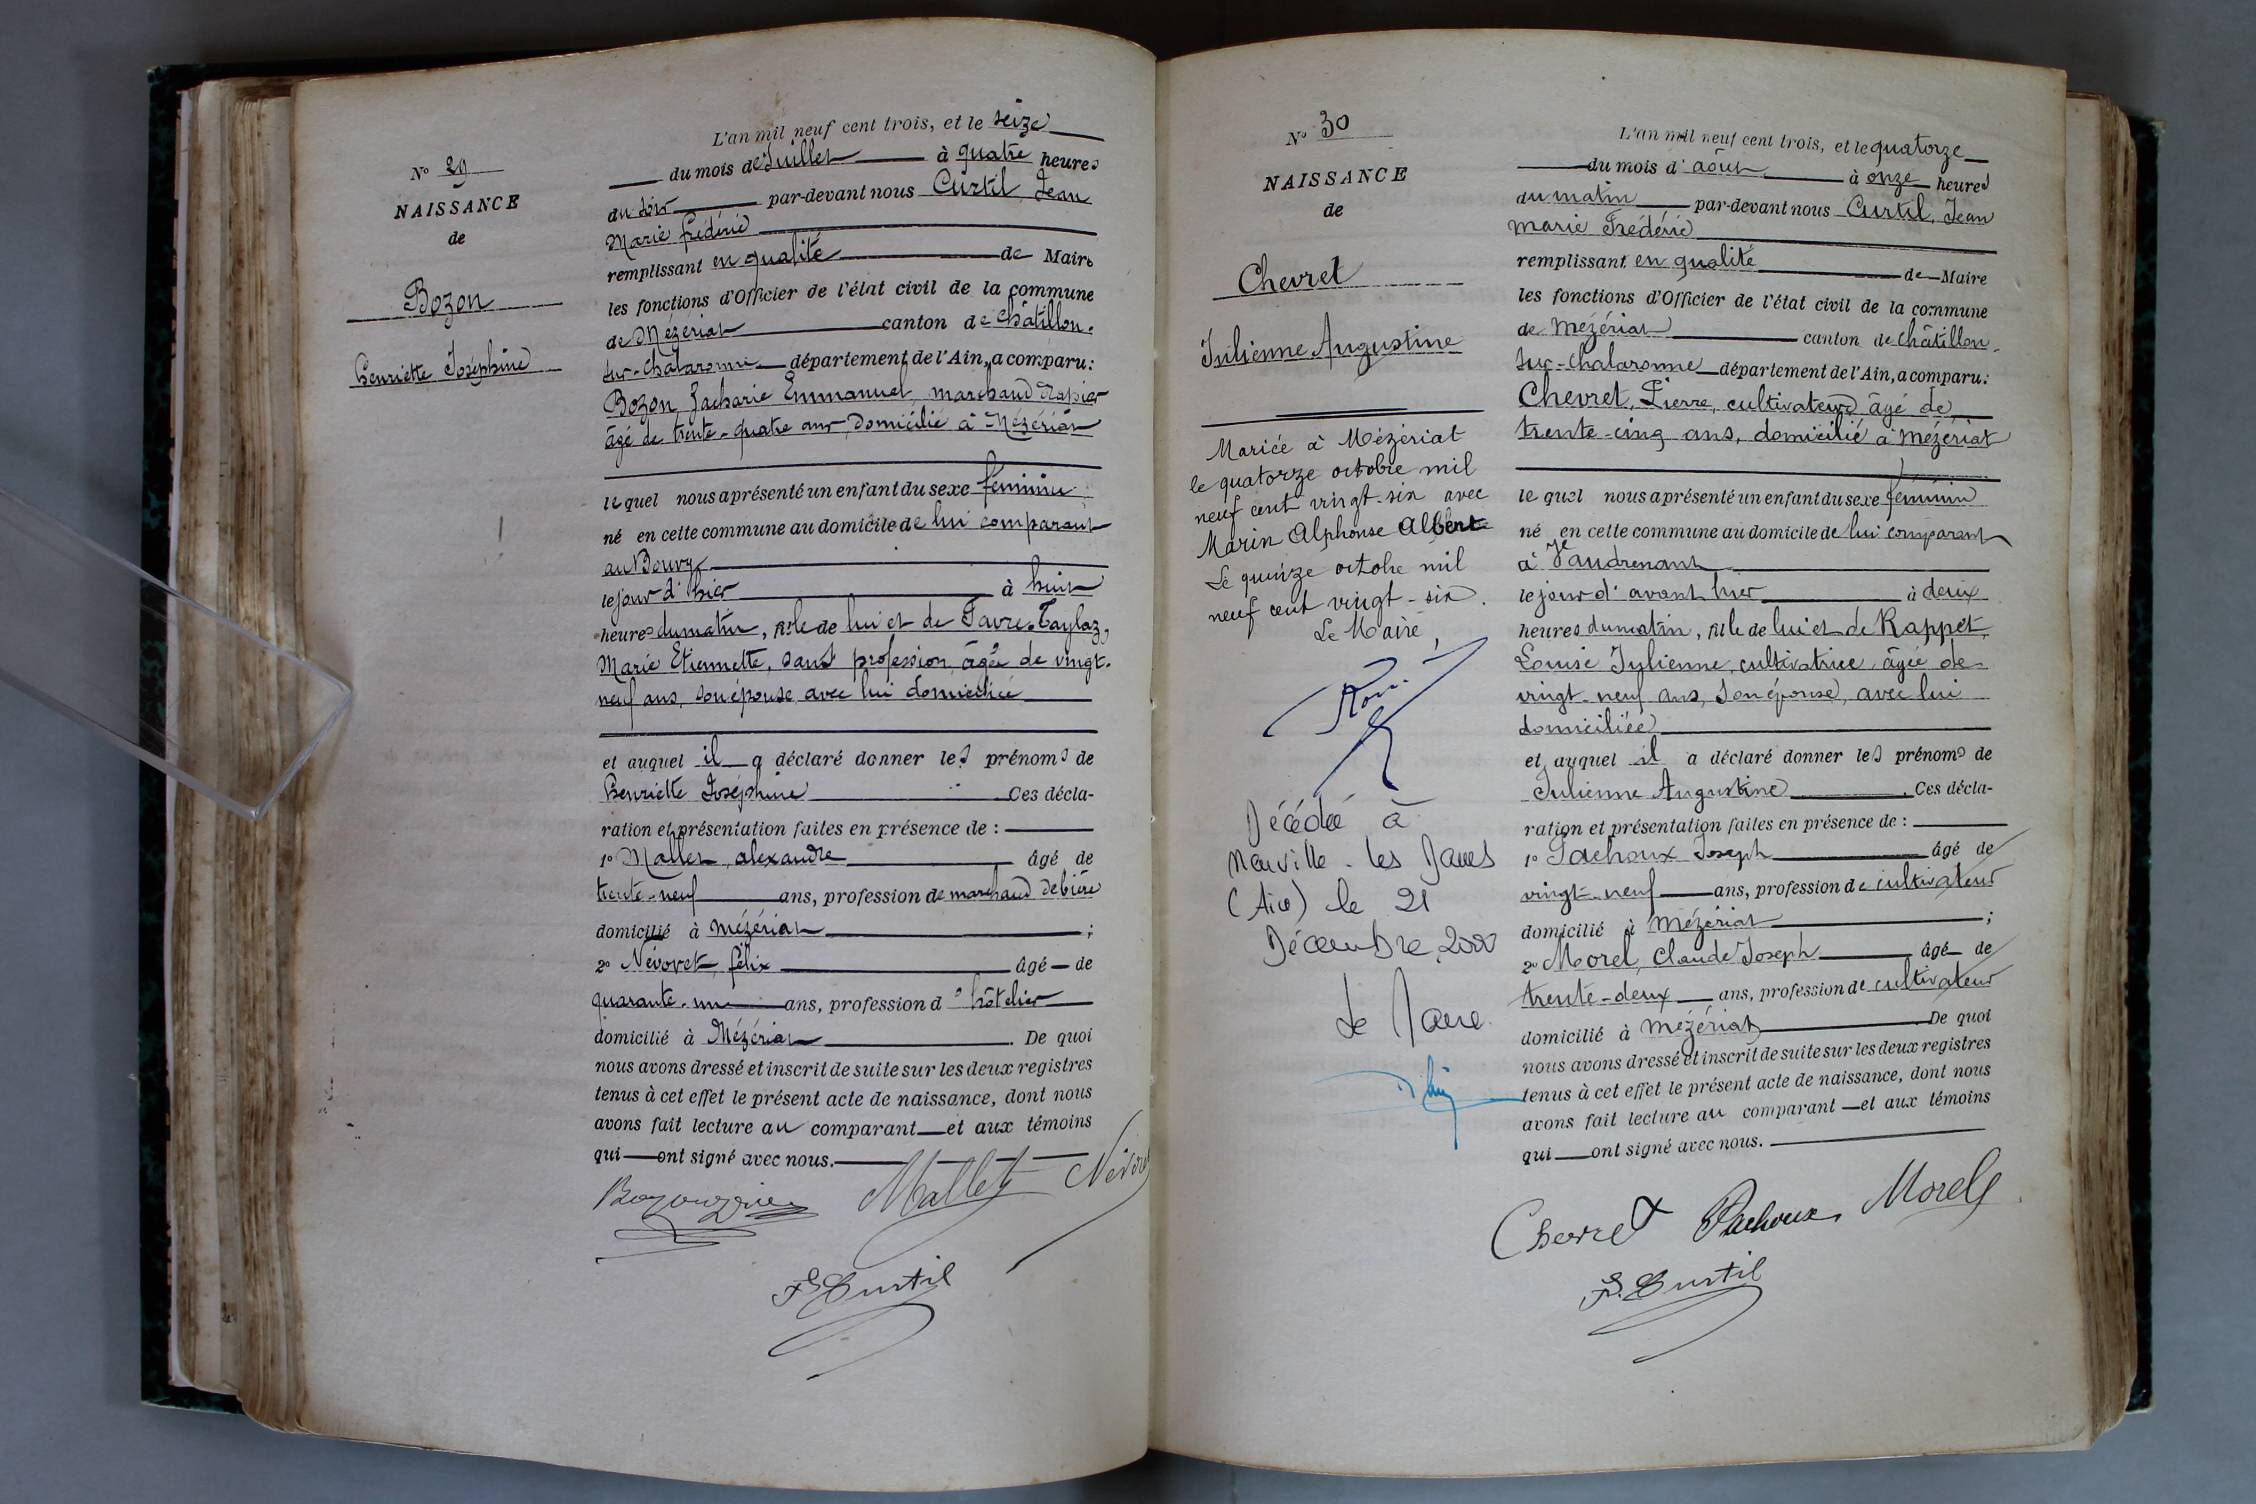 L'an mil neuf cent trois, et le seize
N° 29
du mois de Juillet à quatre heures
NAISSANCE
du soir par-devant nous Curtil, Jean
de
Marie frédéric
remplissant en qualité de Maire
les fonctions d'Officier de l'état civil de la commune
Bozon
de Mézériat canton de Châtillon-
Henriette Joséphine
sur-Chalaronne département de l'Ain, a comparu:
Bozon, Zacharie Emmanuel, marchand drapier
âgé de trente-quatre ans, domicilié à Mézériat
le quel nous a présenté un enfant du sexe féminin
né en cette commune au domicile de lui comparant
au Bouvy
le jour d'hier à huit
heures du matin, fille de lui et de Favre-Taylaz,
Marie Etiennette, sans profession âgée de vingt-
neuf ans, son épouse avec lui domiciliée
et auquel il a déclaré donner les prénoms de
Henriette Joséphine Ces décla-
ration et présentation faites en présence de :
1° Mallet, alexandre âgé de
trente-neuf ans, profession de marchand de bière
domicilié à Mézériat ;
2° Névoret, félix âgé de
quarante-un ans, profession d'hôtelier
domicilié à Mézériat. De quoi
nous avons dressé et inscrit de suite sur les deux registres
tenus à cet effet le présent acte de naissance, dont nous
avons fait lecture au comparant et aux témoins
qui ont signé avec nous.
Mallet Névoret
F. Curtil
N° 30
NAISSANCE
de
Chevret
Julienne Augustine
Mariée à Mézériat
le quatorze octobre mil
neuf cent vingt-six avec
Marin Alphonse Albert
Le quinze octobre mil
neuf cent vingt-six.
Le Maire,
Décédée à
Neuville-les Dames
(Ain) le 21
Décembre 2000
Le Maire
L'an mil neuf cent trois, et le quatorze
du mois d'août à onze heures
du matin par-devant nous Curtil, Jean
marie Frédéric
remplissant en qualité de Maire
les fonctions d'Officier de l'état civil de la commune
de Mézériat canton de Châtillon-
sur-Chalaronne département de l'Ain, a comparu:
Chevret, Pierre, cultivateur âgé de
trente-cinq ans, domicilié à Mézériat
le quel nous a présenté un enfant du sexe féminin
né en cette commune au domicile de lui comparant
à Vaudrenant
le jour d'avant hier à deux
heures du matin, fille de lui et de Rappet,
Louise Julienne, cultivatrice, âgée de
vingt-neuf ans, son épouse, avec lui
domiciliée
et auquel il a déclaré donner les prénoms de
Julienne Augustine. Ces décla-
ration et présentation faites en présence de :
1° Pachoux Joseph âgé de
vingt-neuf ans, profession de cultivateur
domicilié à Mézériat ;
2° Morel, Claude Joseph âgé de
trente-deux ans, profession de cultivateur
domicilié à Mézériat De quoi
nous avons dressé et inscrit de suite sur les deux registres
tenus à cet effet le présent acte de naissance, dont nous
avons fait lecture au comparant et aux témoins
qui ont signé avec nous.
Chevret Pachoux Morel
F. Curtil